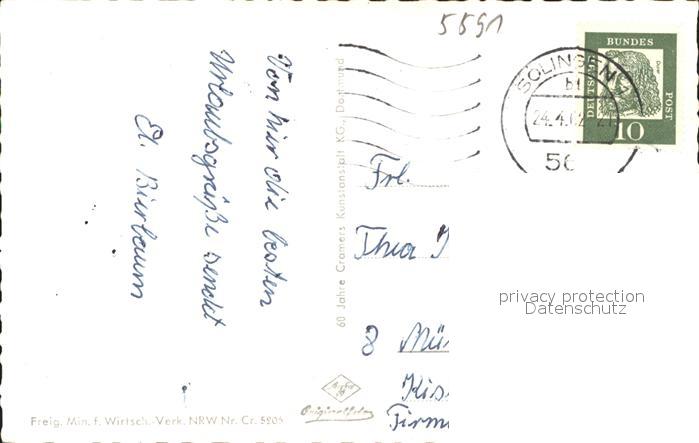 5591
Von hier die besten
Urlaubsgrüße sendet
El. Bierbaum
60 Jahre Cramers Kunstanstalt KG., Dortmund
Frl.
Thea
8 Mün
Kis
Firm
SOLINGEN
24.4.62
56
DEUTSCHE
BUNDES
POST
10
privacy protection
Datenschutz
Freig. Min. f. Wirtsch.-Verk. NRW Nr. Cr. 5805